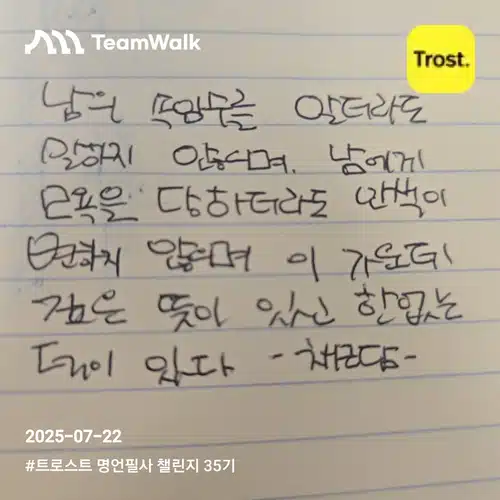 TeamWalk
Trost.
남의 속임수를 알더라도
말하지 않으며, 남에게
모욕을 당하더라도 안색이
변하지 않으며 이 가운데
깊은 뜻이 있고 한없는
덕이 있다 -채근담-
2025-07-22
#트로스트 명언필사 챌린지 35기